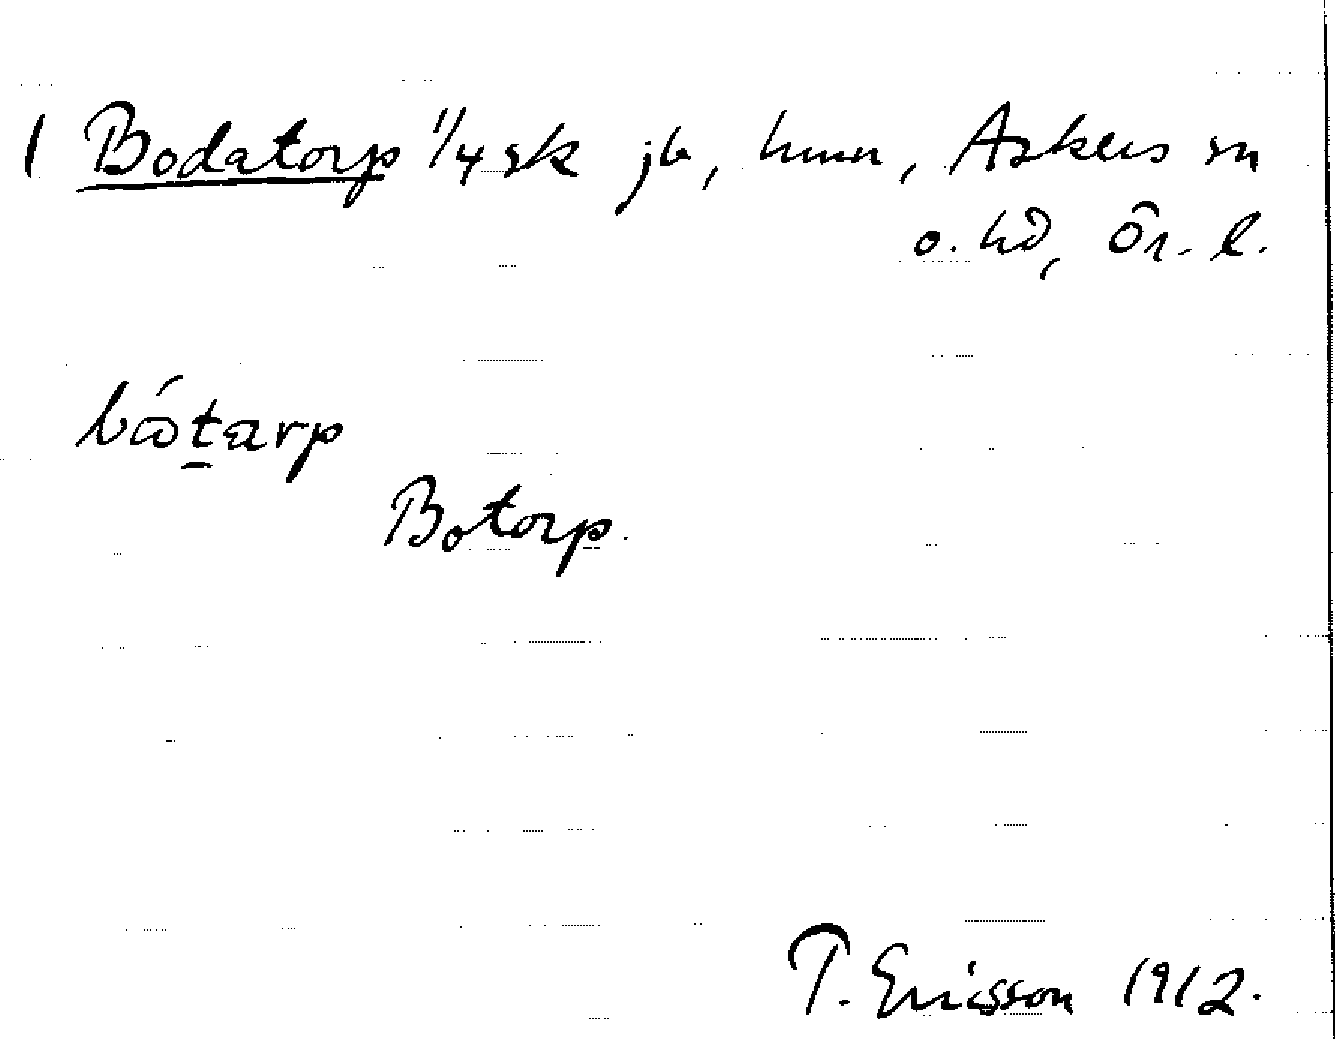 1 Bodatorp 1/4 sk jb, hmn, Askers sn
o. hd, Ör. l.
bótarp
Botorp.
T. Ericsson 1912.